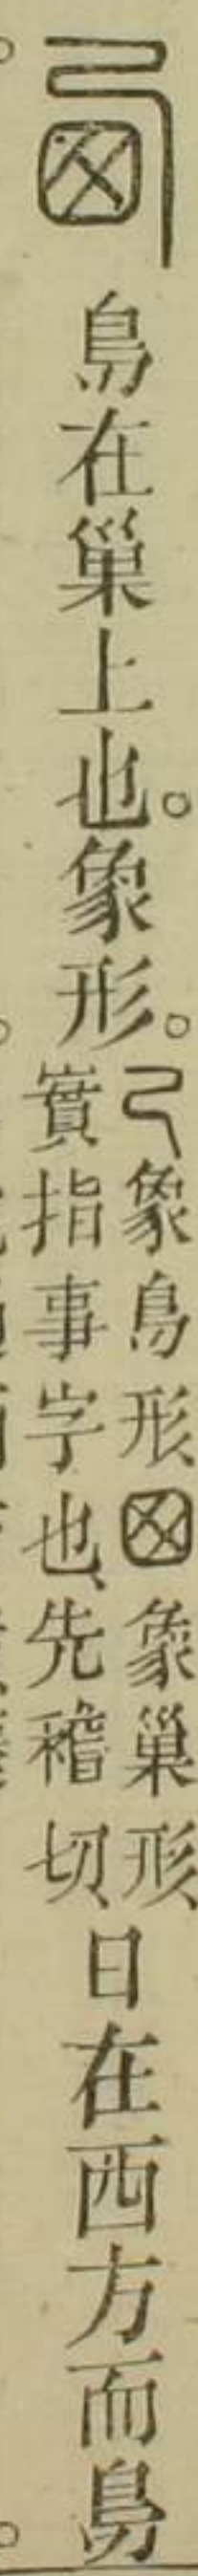 鳥在巢上也。象形。
象鳥形、象巢形、
實指事字也、先稽切、
日在西方而鳥